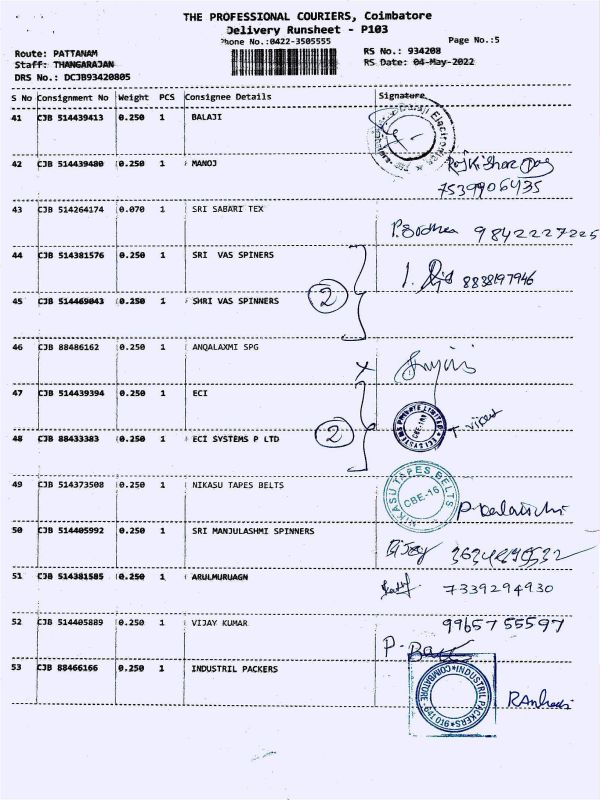 THE PROFESSIONAL COURIERS, Coimbatore
Delivery Runsheet - P103
Phone No.:0422-3505555
Page No.:5
Route: PATTANAM
RS No.: 934208
Staff: THANGARAJAN
RS Date: 04-May-2022
DRS No.: DCJB93420805
S No Consignment No Weight PCS Consignee Details Signature
41 CJB 514439413 0.250 1 BALAJI
42 CJB 514439480 0.250 1 MANOJ
7539906435
43 CJB 514264174 0.070 1 SRI SABARI TEX
9842227225
44 CJB 514381576 0.250 1 SRI VAS SPINERS
8838197946
45 CJB 514469043 0.250 1 SHRI VAS SPINNERS
2
46 CJB 88486162 0.250 1 ANQALAXMI SPG
47 CJB 514439394 0.250 1 ECI
ECI SYSTEMS PRIVATE LIMITED
48 CJB 88433383 0.250 1 ECI SYSTEMS P LTD
2
49 CJB 514373508 0.250 1 NIKASU TAPES BELTS
NIKASU TAPES BELTS
CBE-16
50 CJB 514405992 0.250 1 SRI MANJULASHMI SPINNERS
51 CJB 514381585 0.250 1 ARULMURUAGN
7339294930
52 CJB 514405889 0.250 1 VIJAY KUMAR
9965755597
53 CJB 88466166 0.250 1 INDUSTRIL PACKERS
INDUSTRIL PACKERS
COIMBATORE - 641 016